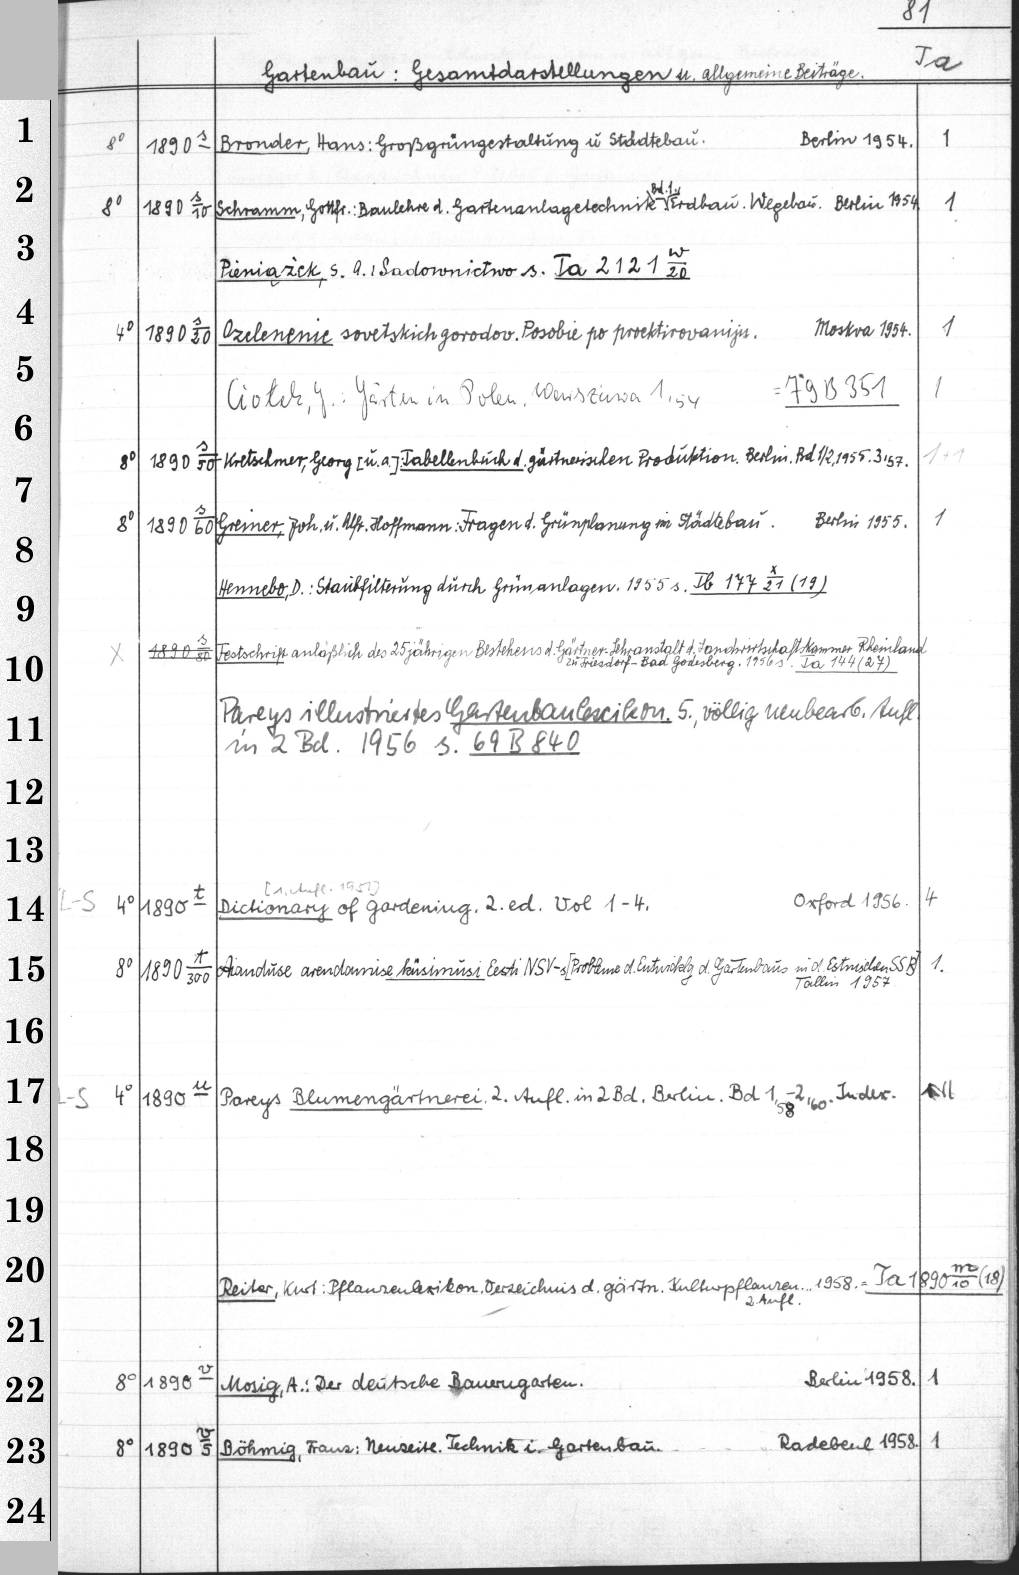 81
Gartenbau : Gesamtdarstellungen u. allgemeine Beiträge. Ta
1 8° 1890 s Bronder, Hans: Großgrüngestaltung u Städtebau. Berlin 1954. 1
2 8° 1890 s/10 Schramm, Gottfr.: Baulehre d. Gartenanlagetechnik Bd. 1. Erdbau. Wegebau. Berlin 1954 1
3 Pieniążek, S. A.: Sadownictwo s. Ta 2121 w/20
4 4° 1890 s/20 Ozelenenie sovetskich gorodov. Posobie po proektirovaniju. Moskva 1954. 1
5 Ciołek, G.: Gärten in Polen. Warszawa 1,54 = 79 B 351 1
6
8° 1890 s/50 Kretschmer, Georg [u.a.]: Tabellenbuch d. gärtnerischen Produktion. Berlin. Bd 1/2,1955. 3,57. 1+1
7 8° 1890 s/60 Greiner, Joh. u. Alfr. Hoffmann: Fragen d. Grünplanung im Städtebau. Berlin 1955. 1
8
Hennebo, D.: Staubfilterung durch Grünanlagen. 1955 s. Ib 177 x/21 (19)
9
10 X 1890 s/80 Festschrift anläßlich des 25jährigen Bestehens d. Gärtner-Lehranstalt d. Landwirtschaftskammer Rheinland
zu Friesdorf-Bad Godesberg. 1956 s. Ta 144 (27)
11 Pareys illustriertes Gartenbaulexikon. 5., völlig neubearb. Aufl.
in 2 Bd. 1956 s. 69 B 840
12
13
[1. Aufl. 1951]
14 L-S 4° 1890 t Dictionary of Gardening. 2. ed. Vol 1-4. Oxford 1956. 4
15 8° 1890 t/300 Aianduse arendamise küsimusi Eesti NSV-s [Probleme d. Entwicklg d. Gartenbaus in d. Estnischen SSR] 1.
Tallin 1957
16
17 L-S 4° 1890 u Pareys Blumengärtnerei. 2. Aufl. in 2 Bd. Berlin. Bd 1,58-2,60. Index.
18
19
20 Reiter, Kurt: Pflanzenlexikon. Verzeichnis d. gärtn. Kulturpflanzen... 1958. = Ta 1890 m/10 (18)
2. Aufl.
21
22 8° 1890 v Mosig, A.: Der deutsche Bauerngarten. Berlin 1958. 1
23 8° 1890 v/5 Böhmig, Franz: Neuzeitl. Technik i. Gartenbau. Radebeul 1958. 1
24